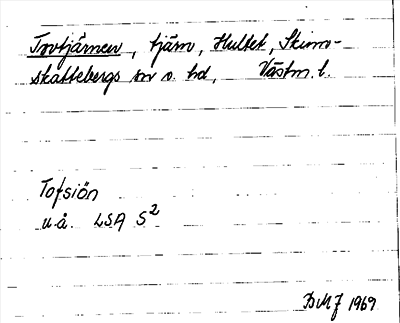 Tovtjärnen, tjärn, Hultet, Skinn-
skattebergs sn o. hd, Västm. l.
Tofsiön
u.å. LSA S2
BMJ 1969